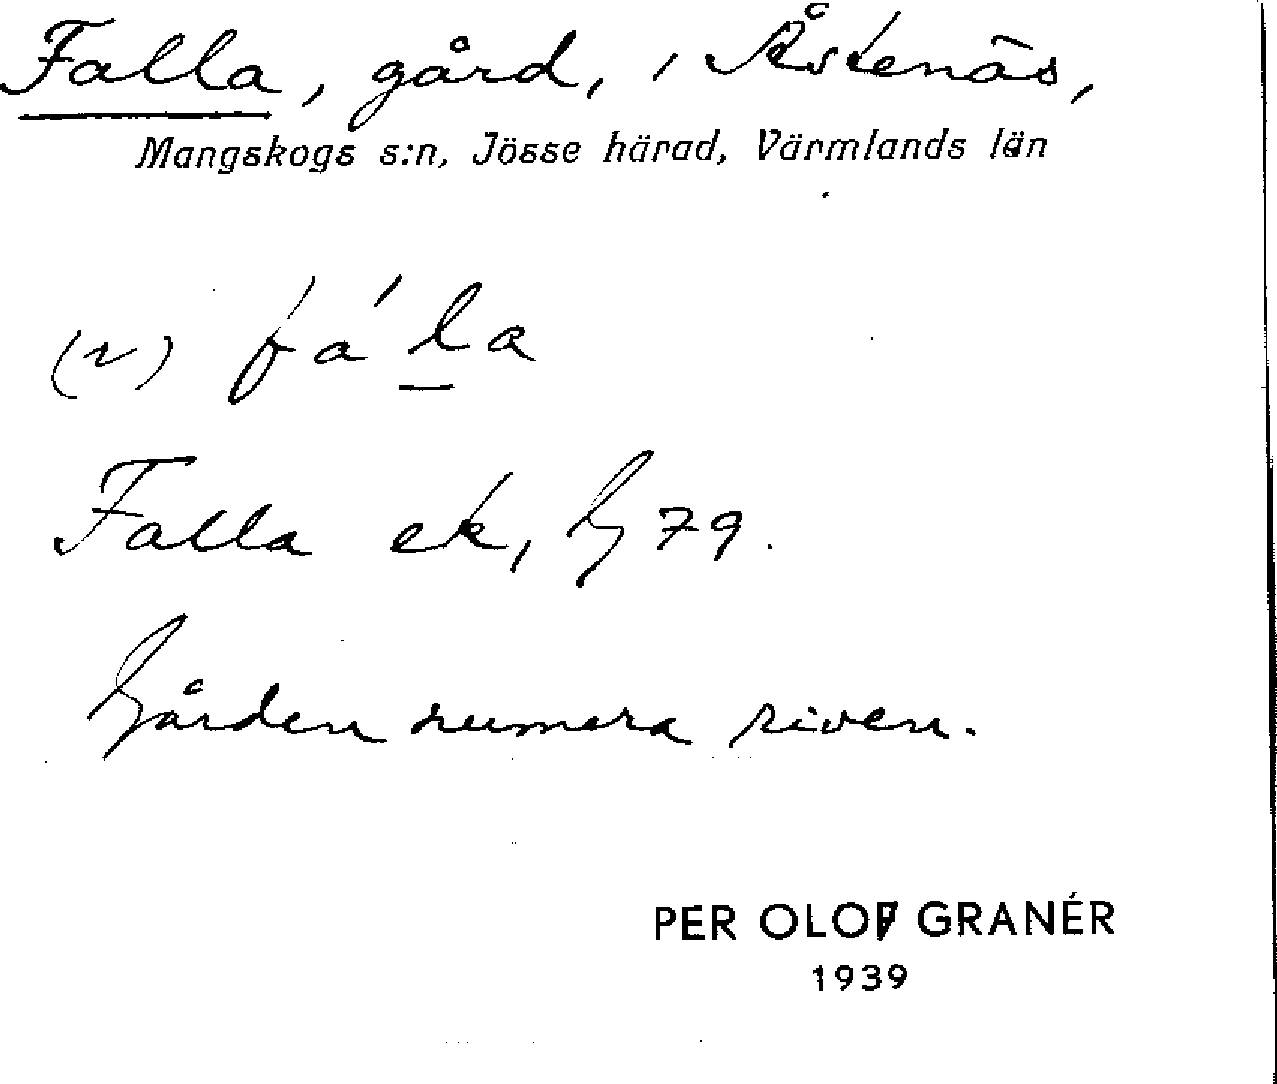 Falla, gård, i Åstenäs,
Mangskogs s:n, Jösse härad, Värmlands län
(2) fa´la
Falla ek, G 79.
Gården numera riven.
PER OLOF GRANÉR
1939